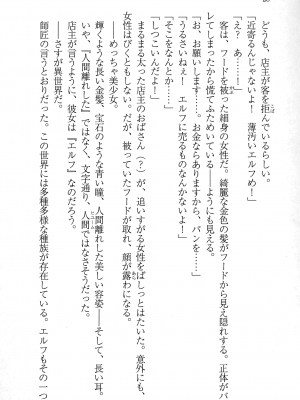 どうも、店主が客を拒んでいるらしい。
「近寄るんじゃないよ！　薄汚いエルフめ！」
「っ、あ……！」
客は、フードを被った細身の女性だ。綺麗な金色の髪がフードから見え隠れする。正体がバ
レてしまったから慌てふためいている――ようにも見える。
「お、お願いします……。お金ならありますから、パンを……」
「うるさいねぇ！　エルフに売るものなんかないよ！」
「そこをなんとか……！」
「しつこいんだよ！」
まるまる太った店主のおばさん（？）が、追いすがる女性をぱしっとはたいた。意外にも、
女性はびくともしない。だが、被っていたフードが取れ、顔が露わになる。
――めっちゃ美少女。
輝くような長い金髪、宝石のような青い瞳、人間離れした美しい容姿――そして、長い耳。
いや、『人間離れした』ではなく、文字通り、人間ではなさそうだった。
店主が言うように、彼女は『エルフ』なのだろう。
――さすが異世界だ。
師匠の言うとおりだった。この世界には多種多様な種族が存在している。エルフもその一つ